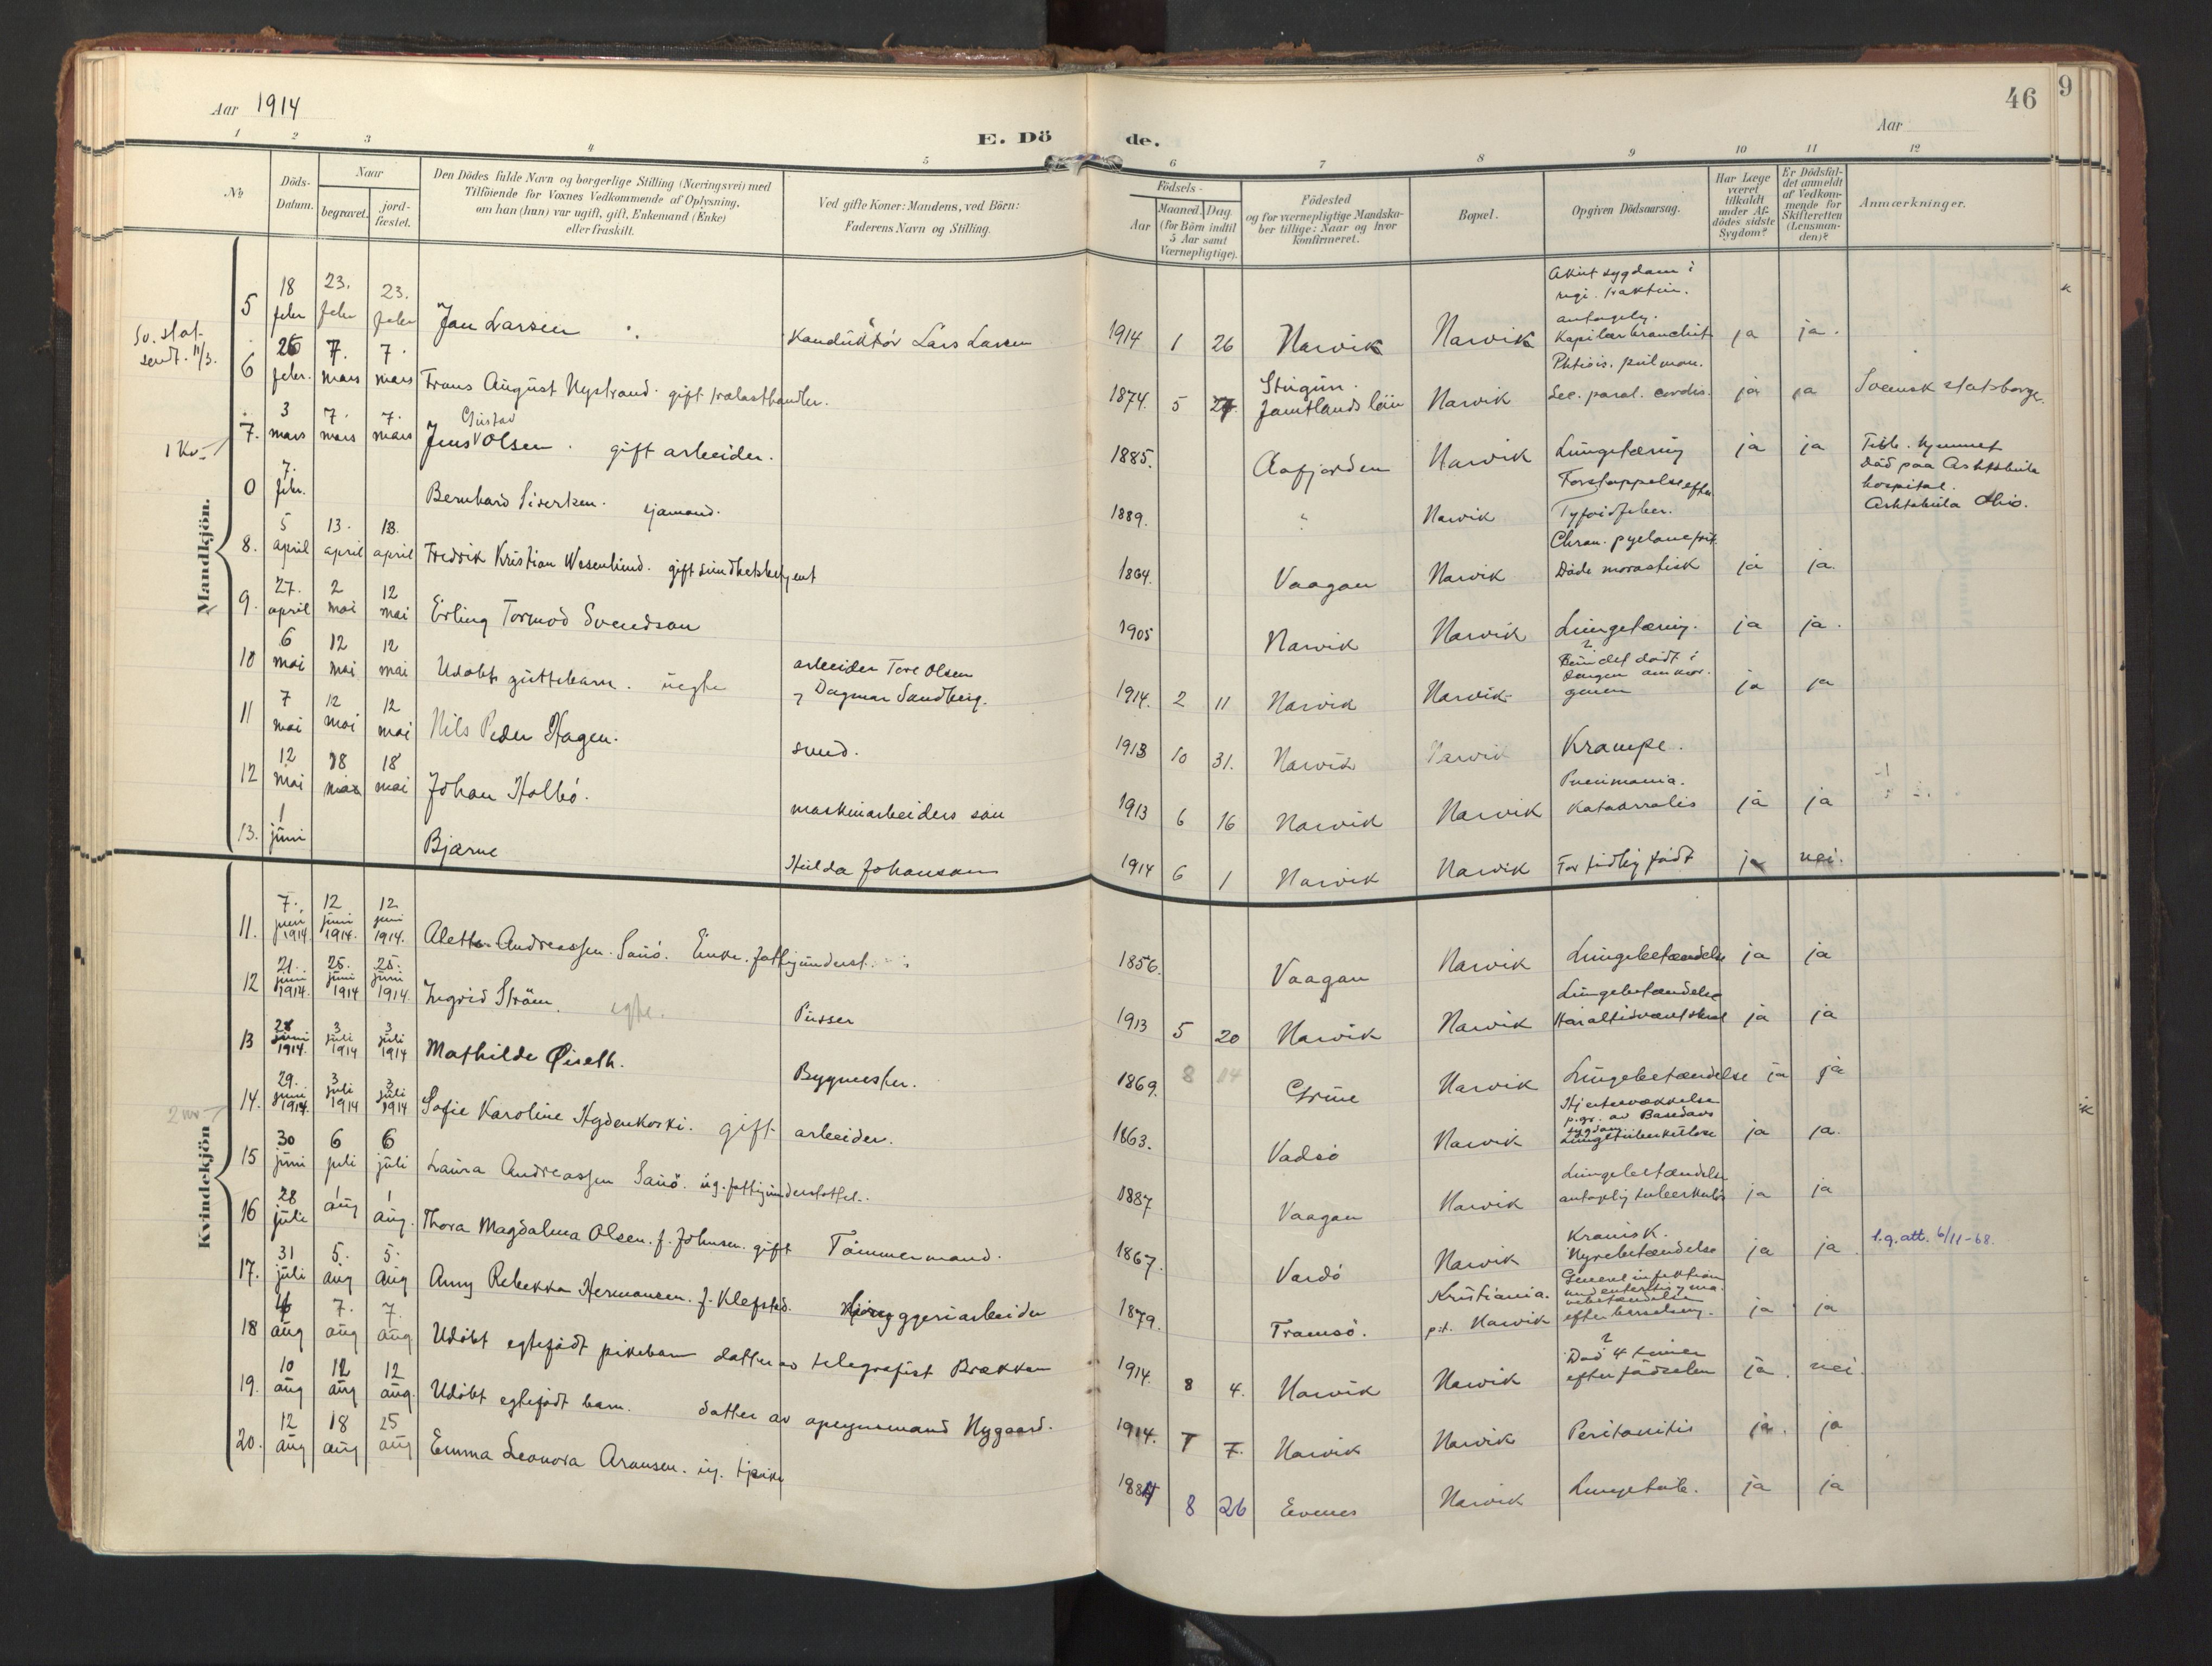 46
9
Aar 1914
E. Dö de.
Aar
1 2 3 4 5 6 7 8 9 10 11 12
No
Döds-Datum.
Naar
begravet.
jord-fæstet.
Den Dödes fulde Navn og borgerlige Stilling (Næringsvei) med
Tilföiende for Voxnes Vedkommende af Oplysning,
om han (hun) var ugift, gift, Enkemand (Enke)
eller fraskilt.
Ved gifte Koner: Mandens, ved Börn:
Faderens Navn og Stilling.
Födsels-
Aar
Maaned. Dag.
(for Börn indtil
5 Aar samt
Værnepligtige).
Födested
og for værnepligtige Mandska-
ber tillige: Naar og hvor
konfirmeret.
Bopæl.
Opgiven Dödsaarsag.
Har Læge
været
tilkaldt
under Af-
dödes sidste
Sygdom?
Er Dödsfal-
det anmeldt
af Vedkom-
mende for
Skifteretten
(Lensman-
den)?
Anmærkninger.
Mandkjön.
5 18 febr 23. febr 23. febr Jan Larsen Konduktör Lars Larsen 1914 1 26 Narvik Narvik Akut sygdom i antagely. Kapilærbronchit ja ja.
Sv. stat. sendt. 11/3.
6 26 febr. 7. mars 7. mars Frans August Nystrand. gift trælasthandler. 1874. 5 27. Stugun. Jämtlands län Narvik Phtisis. pulmon. Sec. paral. cordis. ja ja Svensk statsborger
7. 3 mars 7. mars 7. mars Jens Gustav Olsen. gift arbeider. 1885. Aafjorden Narvik Lungetæring ja ja
0 7. febr. Bernhard Sivertsen. sjømand. 1889. " Narvik Forstoppelse efter Tyfoidfeber. död paa Ashtabula hospital. Ashtabula Ohio.
8. 5 april 13. april 13. april Fredrik Kristian Wesenlund. gift sundhetsbetjent 1864. Vaagan Narvik Chron. pyelonefrit. Döde ja ja.
9. 27. april 2 mai 12 mai Erling Tormod Svendsen 1905 Narvik Narvik Lungetæring. ja ja.
10 6 mai 12 mai 12 mai Udöbt guttebarn. uegte arbeider Tore Olsen, Dagmar Sandberg. 1914. 2 11 Narvik Narvik Fundet dödt i sengen om morgenen ja ja
11 7 mai 12 mai 12 mai Nils Peder Hagen. smed. 1913 10 31. Narvik Narvik Krampe.
12 12 mai 18 mai 18 mai Johan Holbö. maskinarbeiders sön 1913 6 16 Narvik Narvik Pneumonia. Katarralis ja ja
13. 1 juni Bjarne Hulda Johansen 1914 6 1 Narvik Narvik For tidlig födt ja nei.
Kvindekjön
11. 7. juni 1914. 12 juni 1914. 12 juni 1914. Alette Andreassen. Sanö. Enke. fattigunderst. 1856. Vaagan Narvik Lungebetændelse ja ja
12 21. juni 1914. 25. juni 1914 25. juni 1914. Ingrid Ström. egte. Pusser 1913 5 20 Narvik Narvik Lungebetændelse ja ja
13 28 juni 1914. 3 juli 1914 3 juli 1914 Mathilde Øiseth. Bygmester. 1869. 8 14 Grue Narvik Lungebetændelse ja ja
14. 29. juni 1914. 3 juli 1914 3 juli 1914 Sofie Karoline Hydenkoski. gift arbeider. 1863. Vadsö Narvik p.gr. av Basedows sygdom Lungetuberkulose ja ja.
15 30 juni 6 juli 6 juli Laura Andreassen Sanö. ug. fattigunderstöttet. 1887 Vaagan Narvik Lungebetændelse antagelig tuberkulös ja ja
16 28 juli 1 aug 1 aug. Thora Magdalena Olsen. f. Johnsen. gift Tömmermand. 1867. Vardö Narvik Kronisk. Nyrebetændelse ja ja. l.g.att. 6/11-68.
17. 31 juli 5. aug 5. aug Anny Rebekka Hermansen. f. Klefstad. bryggeriarbeider 1879. Tromsö. Kristiania. p.t. Narvik efter barselseng. ja ja
18 4 aug 7. aug 7. aug Udöbt egtefödt pikebarn datter av telegrafist Brækkan 1914. 8 4. Narvik Narvik Död 4 timer efter födselen ja. nei.
19. 10 aug 12 aug 12 aug. Udöbt egtefödt barn. datter av opsynsmand Nygaard. 1914. 7 7. Narvik Narvik Peritonitis ja. ja
20. 12 aug 18 aug 25 aug Emma Leonora Aronsen. ug. tj.pike 1884 8 26 Evenes Narvik Lungetub. ja ja